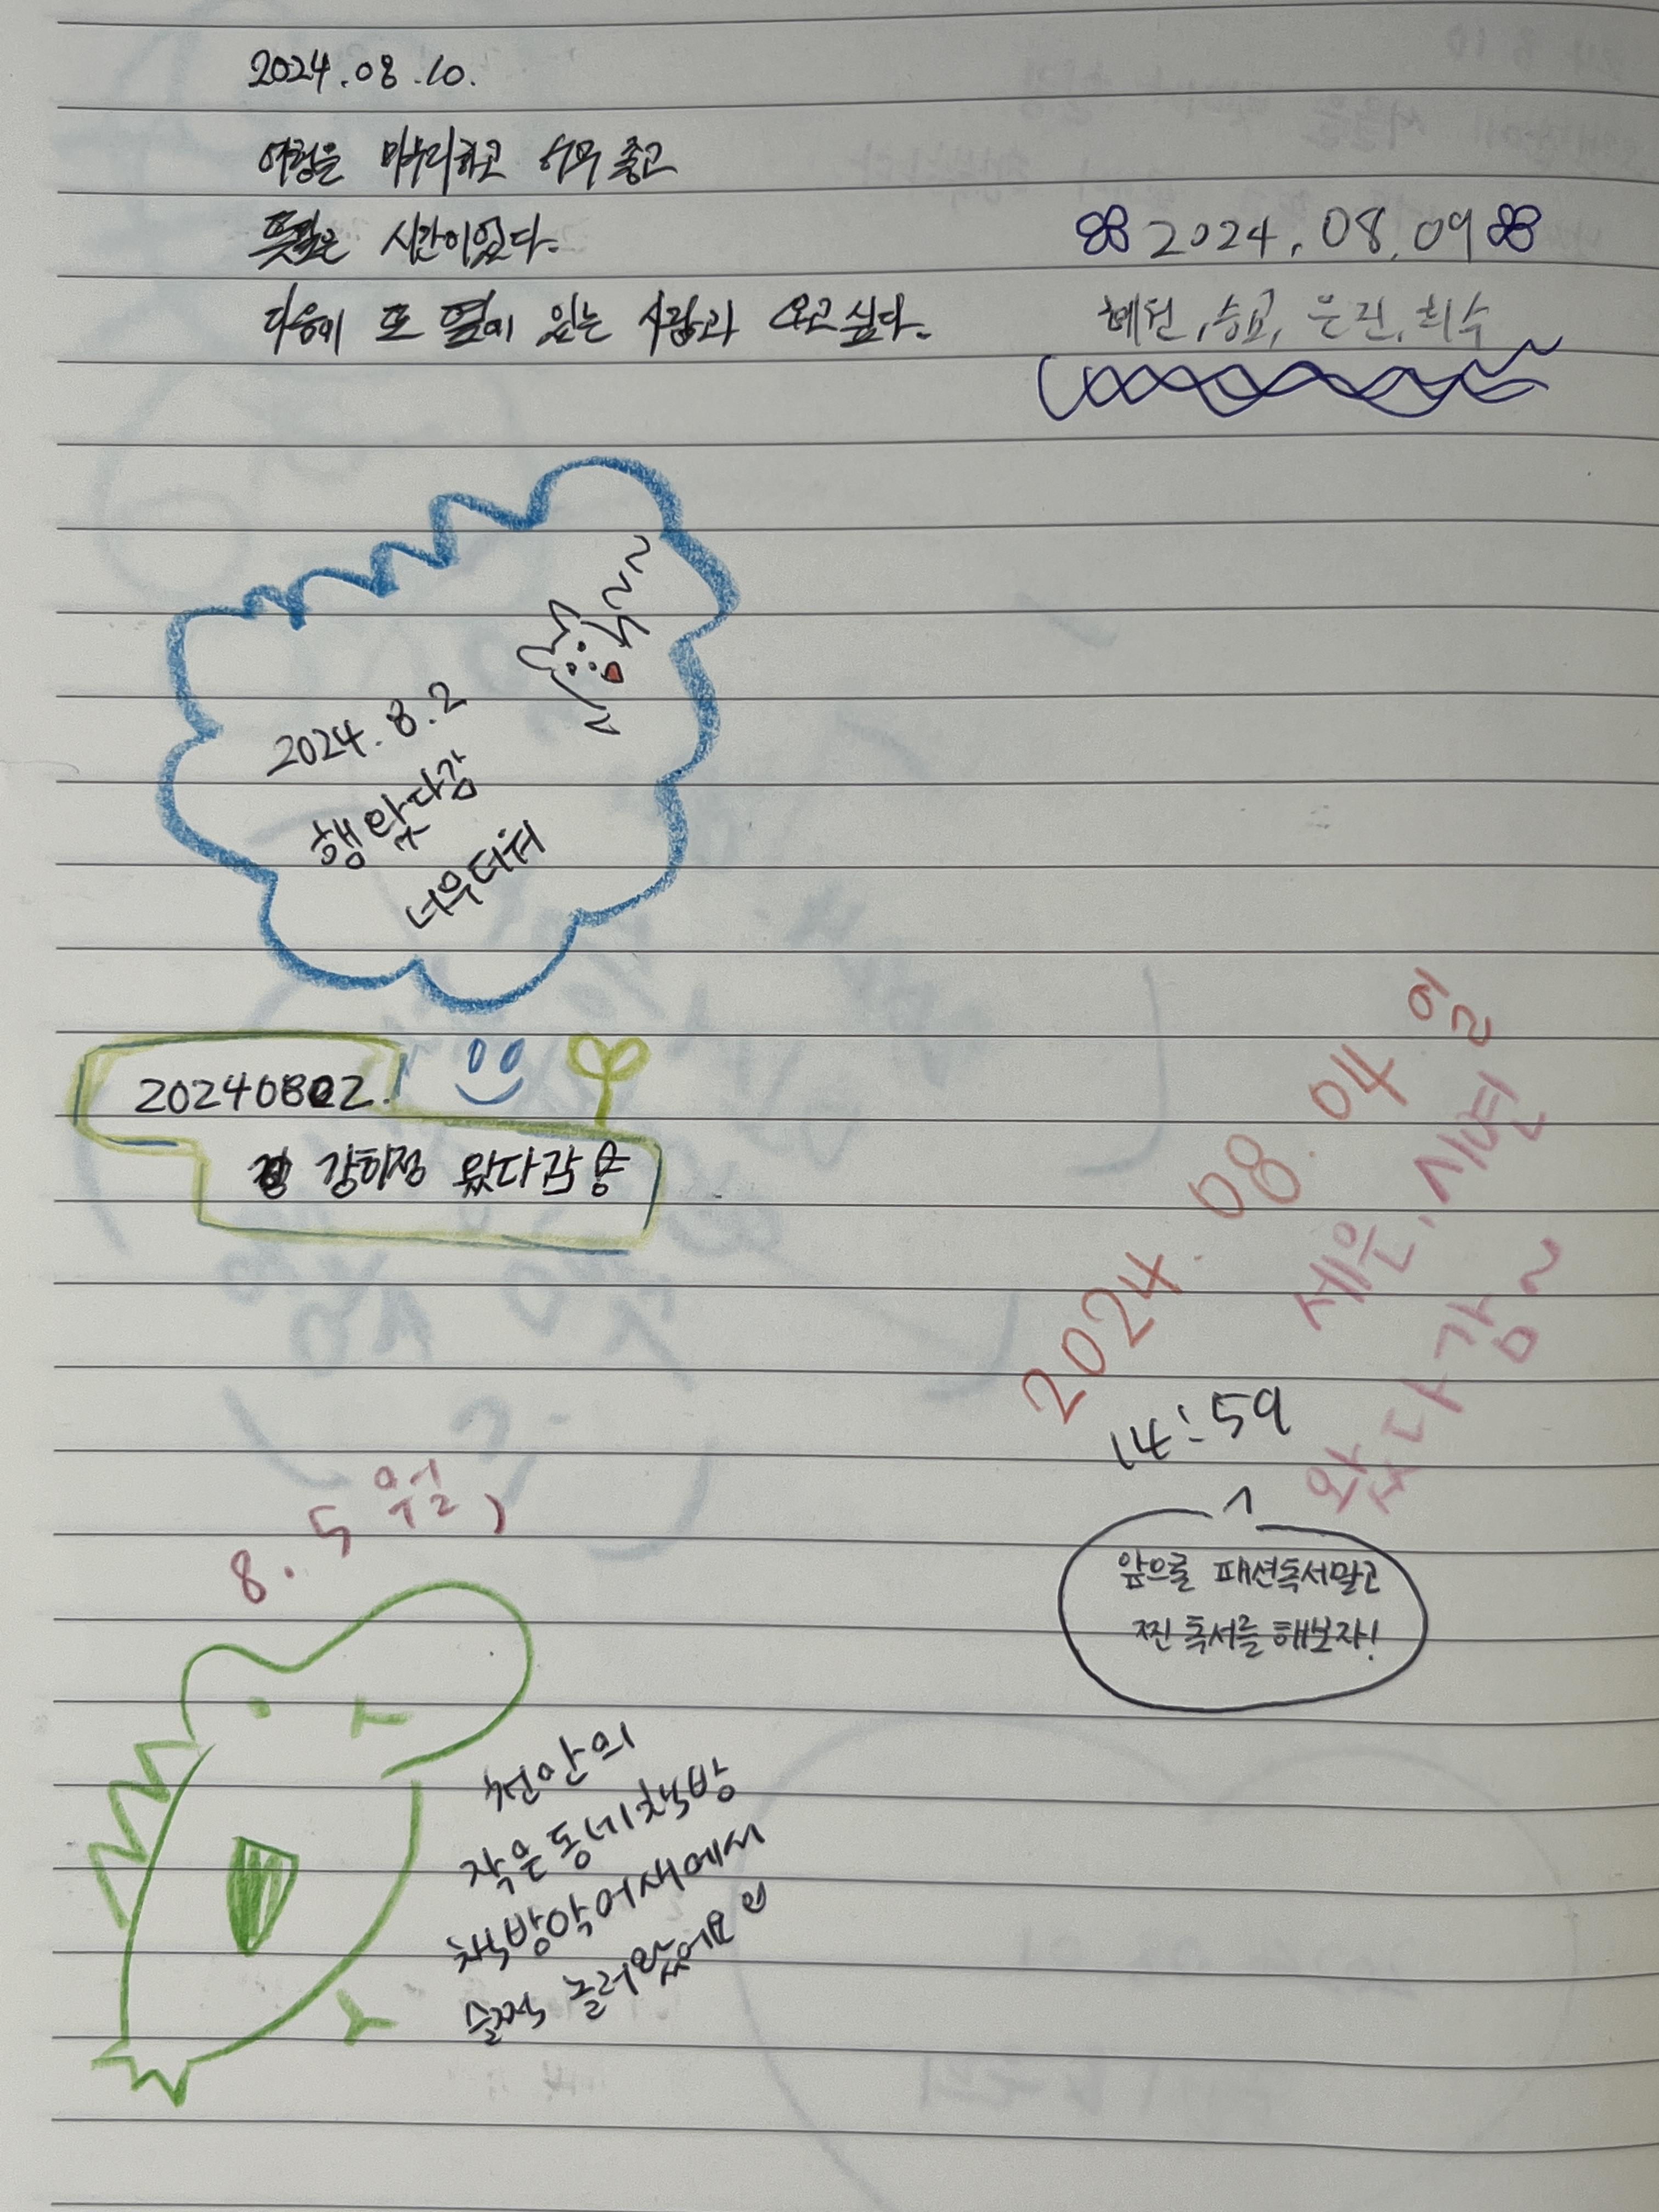 2024.08.10.
여행은 마무리하고 너무 좋고
뜻깊은 시간이였다.
다음에 또 옆에 있는 사람과 오고싶다.
2024.08.09
혜원, 은진, 희수
2024.8.2
행 왔다감
너무더워
20240802.
강희정 왔다감
2024.08.04 일
세은, 시현
왔다감~
14:59
앞으론 패션독서말고
찐 독서를 해보자!
8.5 월)
천안의
작은동네책방
책방악어새에서
슬쩍 놀러왔어요